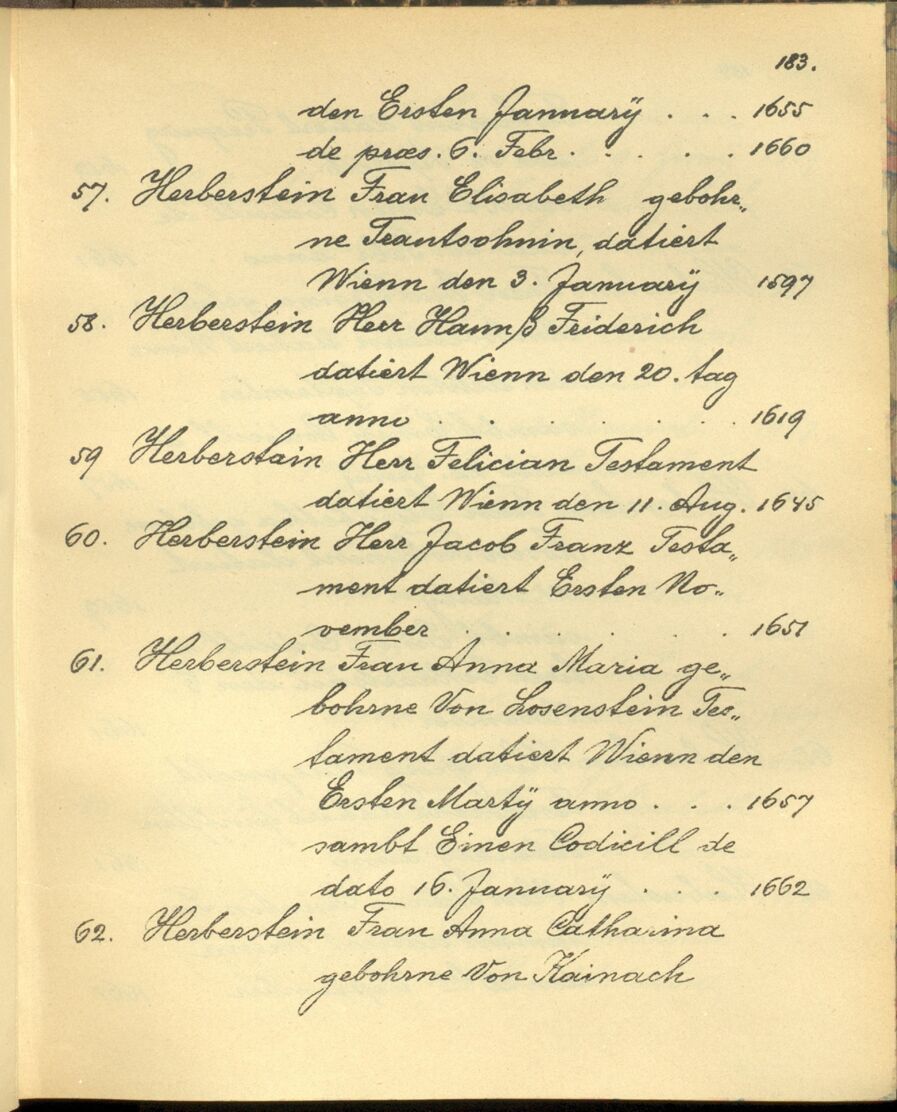 183.
den Ersten Jannuarÿ . . . 1655
de præs. 6. Febr. . . . . 1660
57. Herberstein Frau Elisabeth gebohr„
ne Trautsohnin, datiert
Wienn den 3. Januarÿ 1597
58. Herberstein Herr Hannß Friderich
datiert Wienn den 20. tag
anno . . . . . 1619
59 Herberstain Herr Felician Testament
datiert Wienn den 11. Aug. 1645
60. Herberstein Herr Jacob Franz Testa„
ment datiert Ersten No„
vember . . . . . . . 1651
61. Herberstein Frau Anna Maria ge„
bohrne Von Losenstein Tes„
tament datiert Wienn den
Ersten Martÿ anno . . . 1657
sambt Einen Codicill de
dato 16. Januarÿ . . . 1662
62. Herberstein Frau Anna Catharina
gebohrne Von Kainach